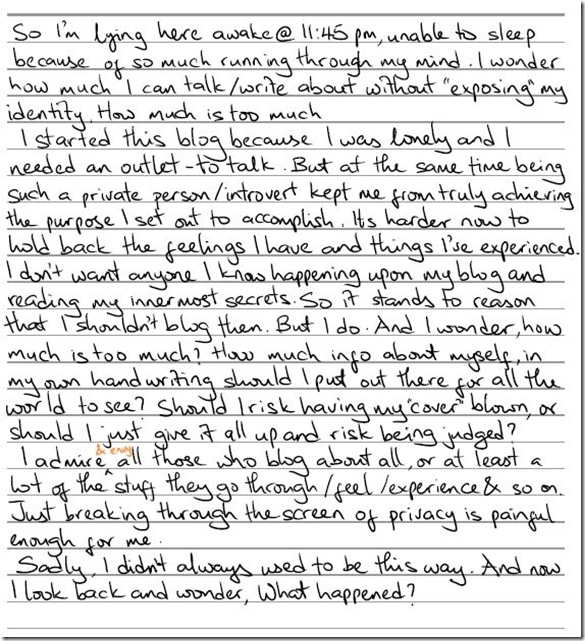 So I'm lying here awake @ 11:45 pm, unable to sleep
because of so much running through my mind. I wonder
how much I can talk/write about without "exposing" my
identity. How much is too much
I started this blog because I was lonely and I
needed an outlet - to talk. But at the same time being
such a private person/introvert kept me from truly achieving
the purpose I set out to accomplish. Its harder now to
hold back the feelings I have and things I've experienced.
I don't want anyone I know happening upon my blog and
reading my innermost secrets. So it stands to reason
that I shouldn't blog then. But I do. And I wonder, how
much is too much? How much info about myself, in
my own handwriting should I put out there for all the
world to see? Should I risk having my "cover" blown, or
should I just give it all up and risk being judged?
& envy
I admire all those who blog about all, or at least a
lot of the stuff they go through/feel/experience & so on.
Just breaking through the screen of privacy is painful
enough for me.
Sadly, I didn't always used to be this way. And now
I look back and wonder, What happened?